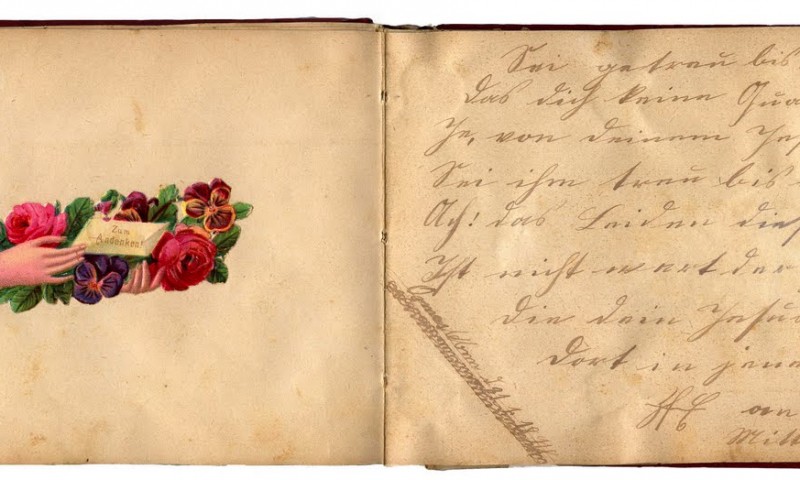 Zum
Andenken!
Sei getreu bis
Das dich keine Qua
Je, von deinem Jes
Sei ihm treu bis
Ach! das Leiden dies
Ist nicht wert der
die dein Jesu
dort in jene
an
Mitt